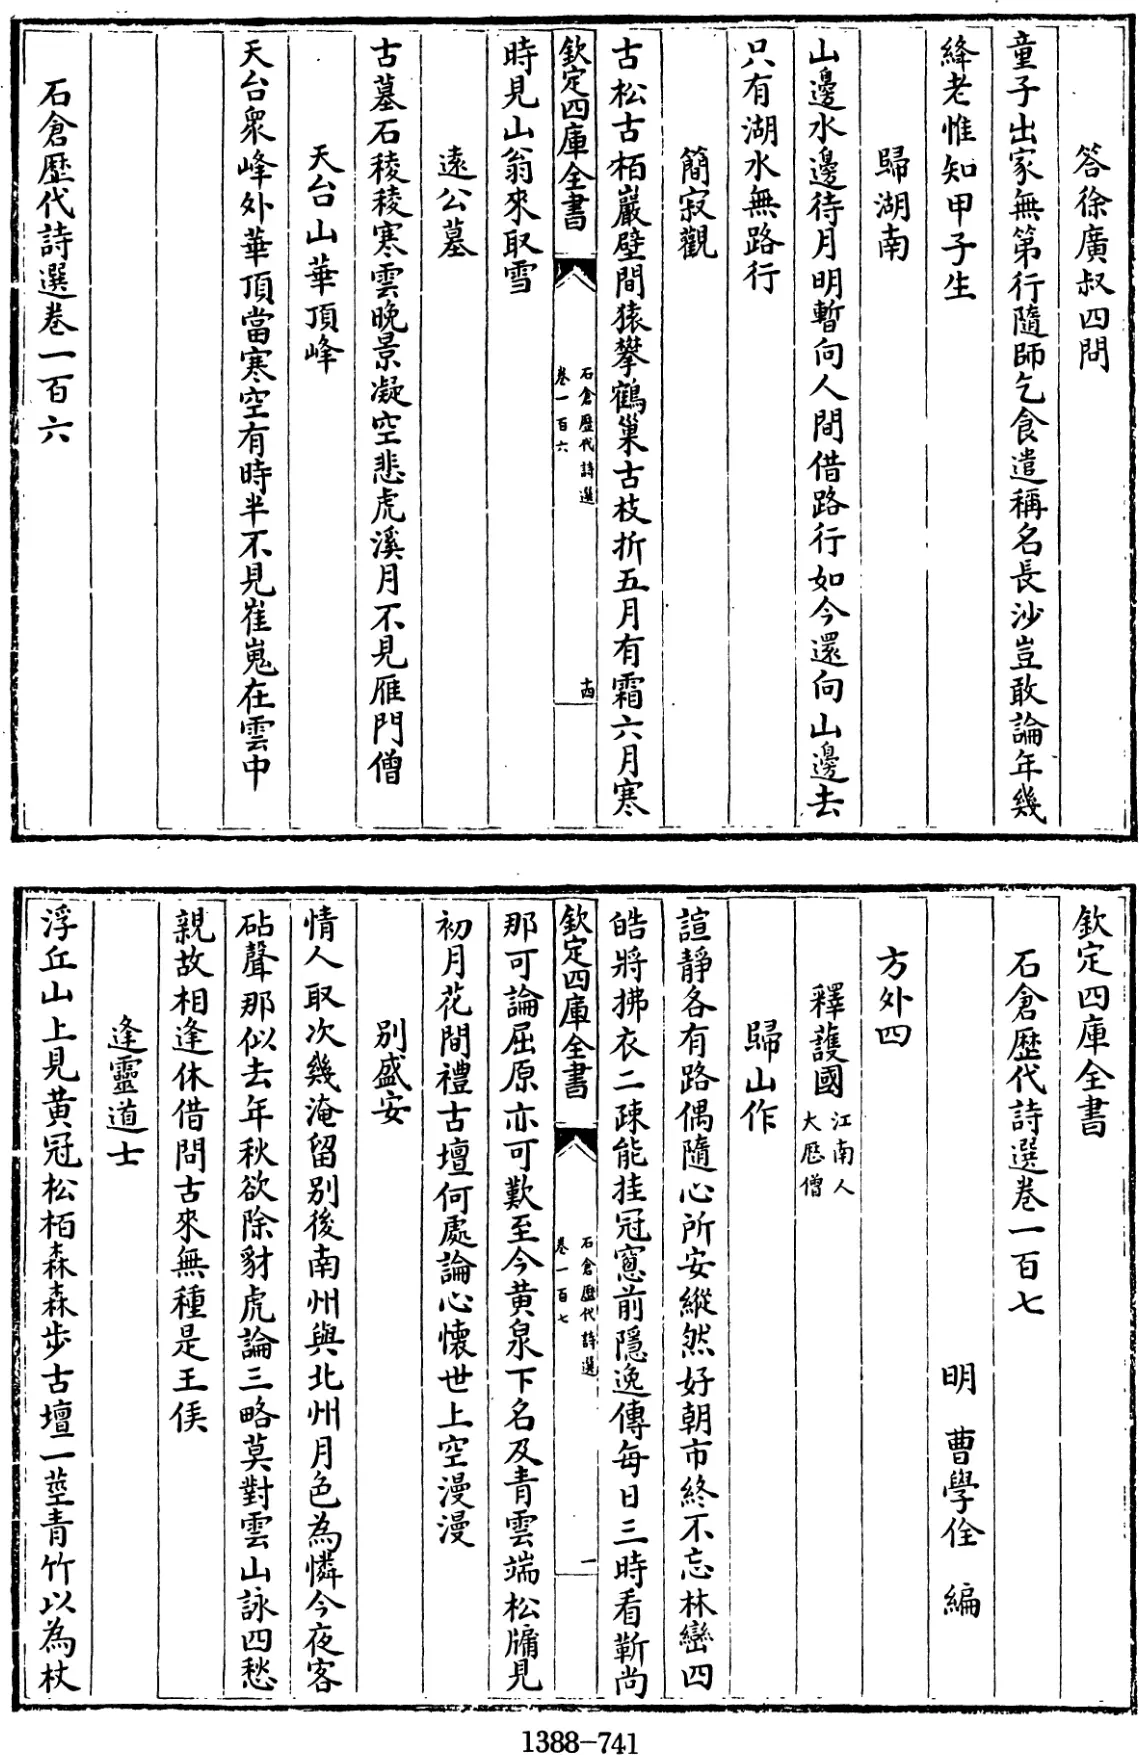 答徐廣叔四問
童子出家無第行隨師乞食遣稱名長沙豈敢論年幾
絳老惟知甲子生
歸湖南
山邊水邊待月明暫向人間借路行如今還向山邊去
只有湖水無路行
簡寂觀
古松古栢巖壁間猿攀鶴巢古枝折五月有霜六月寒
欽定四庫全書
石倉歷代詩選
卷一百六
十四
時見山翁來取雪
遠公墓
古墓石稜稜寒雲晚景凝空悲虎溪月不見雁門僧
天台山華頂峰
天台衆峰外華頂當寒空有時半不見崔嵬在雲中
石倉歷代詩選卷一百六
欽定四庫全書
石倉歷代詩選卷一百七
明 曹學佺 編
方外四
釋護國
江南人
大歷僧
歸山作
諠靜各有路偶隨心所安縱然好朝市終不忘林巒四
皓將拂衣二疎能挂冠窻前隱逸傳每日三時看靳尚
欽定四庫全書
石倉歷代詩選
卷一百七
一
那可論屈原亦可歎至今黄泉下名及青雲端松牖見
初月花間禮古壇何處論心懷世上空漫漫
別盛安
情人取次幾淹留別後南州與北州月色為憐今夜客
砧聲那似去年秋欲除豺虎論三略莫對雲山詠四愁
親故相逢休借問古來無種是王侯
逢靈道士
浮丘山上見黄冠松栢森森步古壇一莖青竹以為杖
1388-741